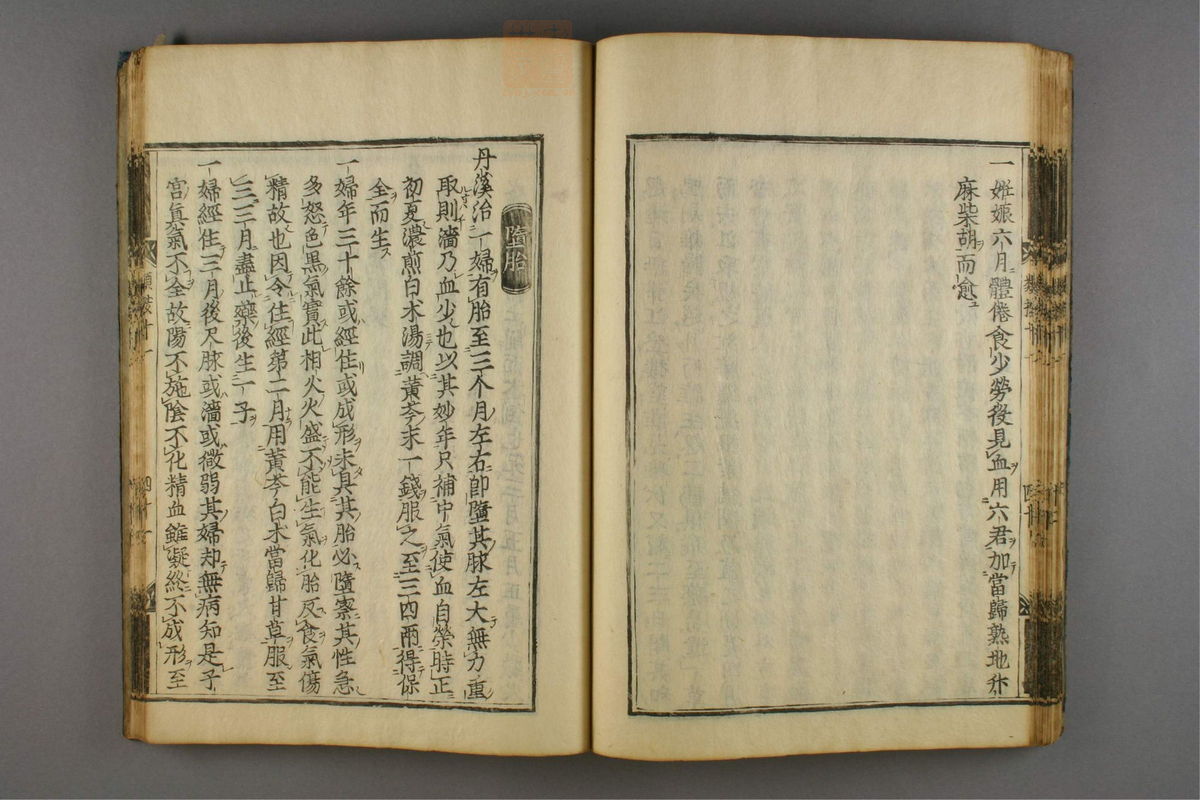 一妊娠六月體倦食少勞役見血用六君加當歸熟地升
麻柴胡而愈
墮胎
丹溪治一婦有胎至三个月左右卽墮其脉左大無力重
取則濇乃血少也以其妙年只補中氣使血自榮時正
初夏濃煎白朮湯調黃芩末一錢服之至三四兩得保
全而生
一婦年三十餘或經住或成形未具其胎必墮察其性急
多怒色黑氣實此相火火盛不能生氣化胎反食氣傷
精故也因令住經第二月用黃芩白朮當歸甘草服至
三三月盡止藥後生一子
一婦經住三月後尺脉或濇或微弱其婦却無病知是子
宮眞氣不全故陽不施陰不化精血雖凝終不成形至